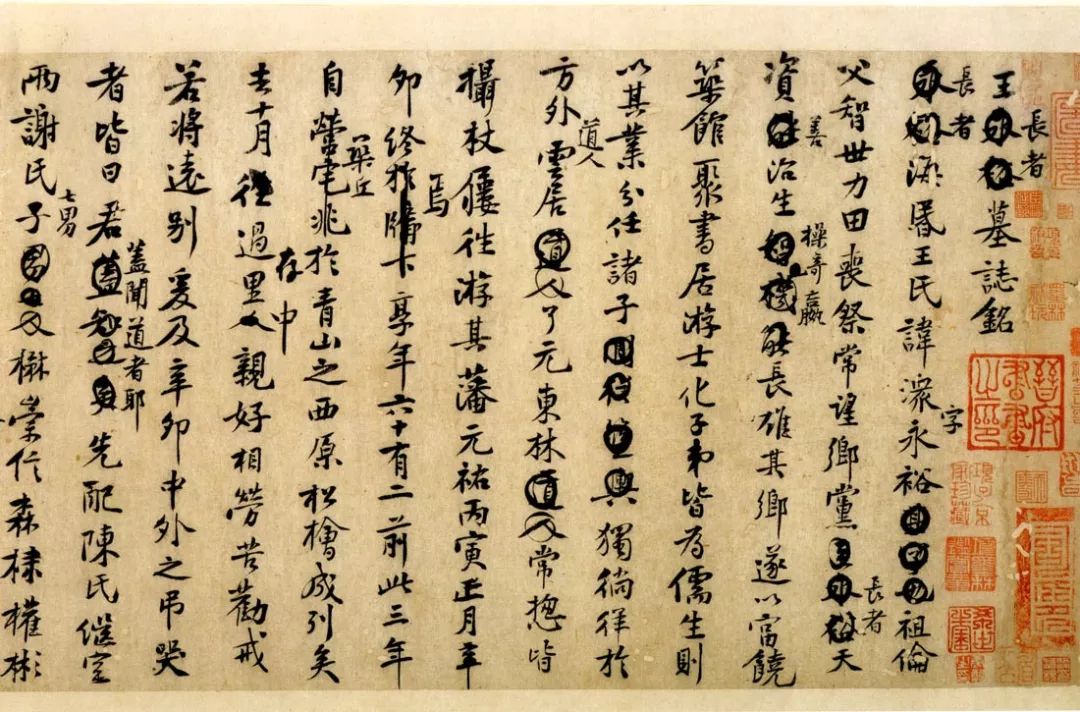 王長者墓誌銘
長者海昏王氏諱潨字永裕祖倫
父智世力田喪祭常望鄉黨長者天
資善治生操奇贏長雄其鄉遂以富饒
築館聚書居游士化子弟皆為儒生則
以其業分任諸子獨徜徉於
方外雲居道人了元東林常揔皆
攝杖屨徃游其藩焉元祐丙寅正月辛
卯終於牖下享年六十有二前此三年
自營宅兆築丘於青山之西原松檜成列矣
去十月過存里中親好相勞苦勸戒
若將遠別爰及辛卯中外之弔哭
者皆曰君蓋聞道者耶先配陳氏繼室
兩謝氏子七男楙崇信森棣權彬